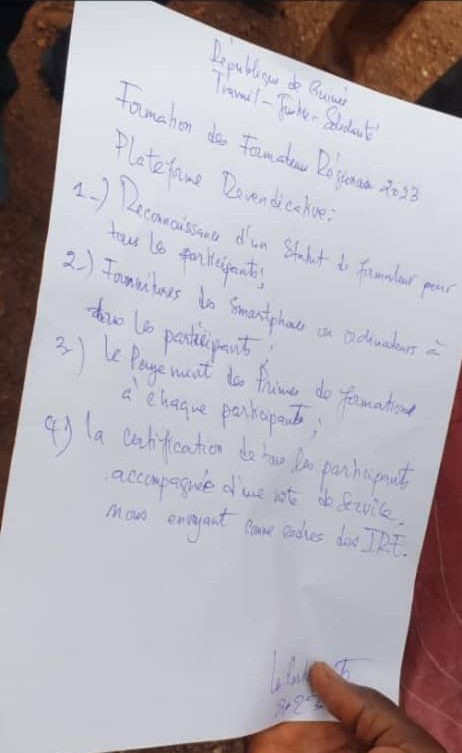 République de Guinée
Travail - Justice - Solidarité
Formation des Formateurs Régionaux 2023
Plateforme Revendicative:
1-) Reconnaissance d'un Statut de formateur pour
tous les participants;
2-) Fournitures des Smartphones ou ordinateurs à
tous les participants;
3) Le Payement des Primes de formations
à chaque participants;
4) la certification de tous les participants
accompagnée d'une note de Service
nous envoyant comme cadres des IRE.
Les
2023